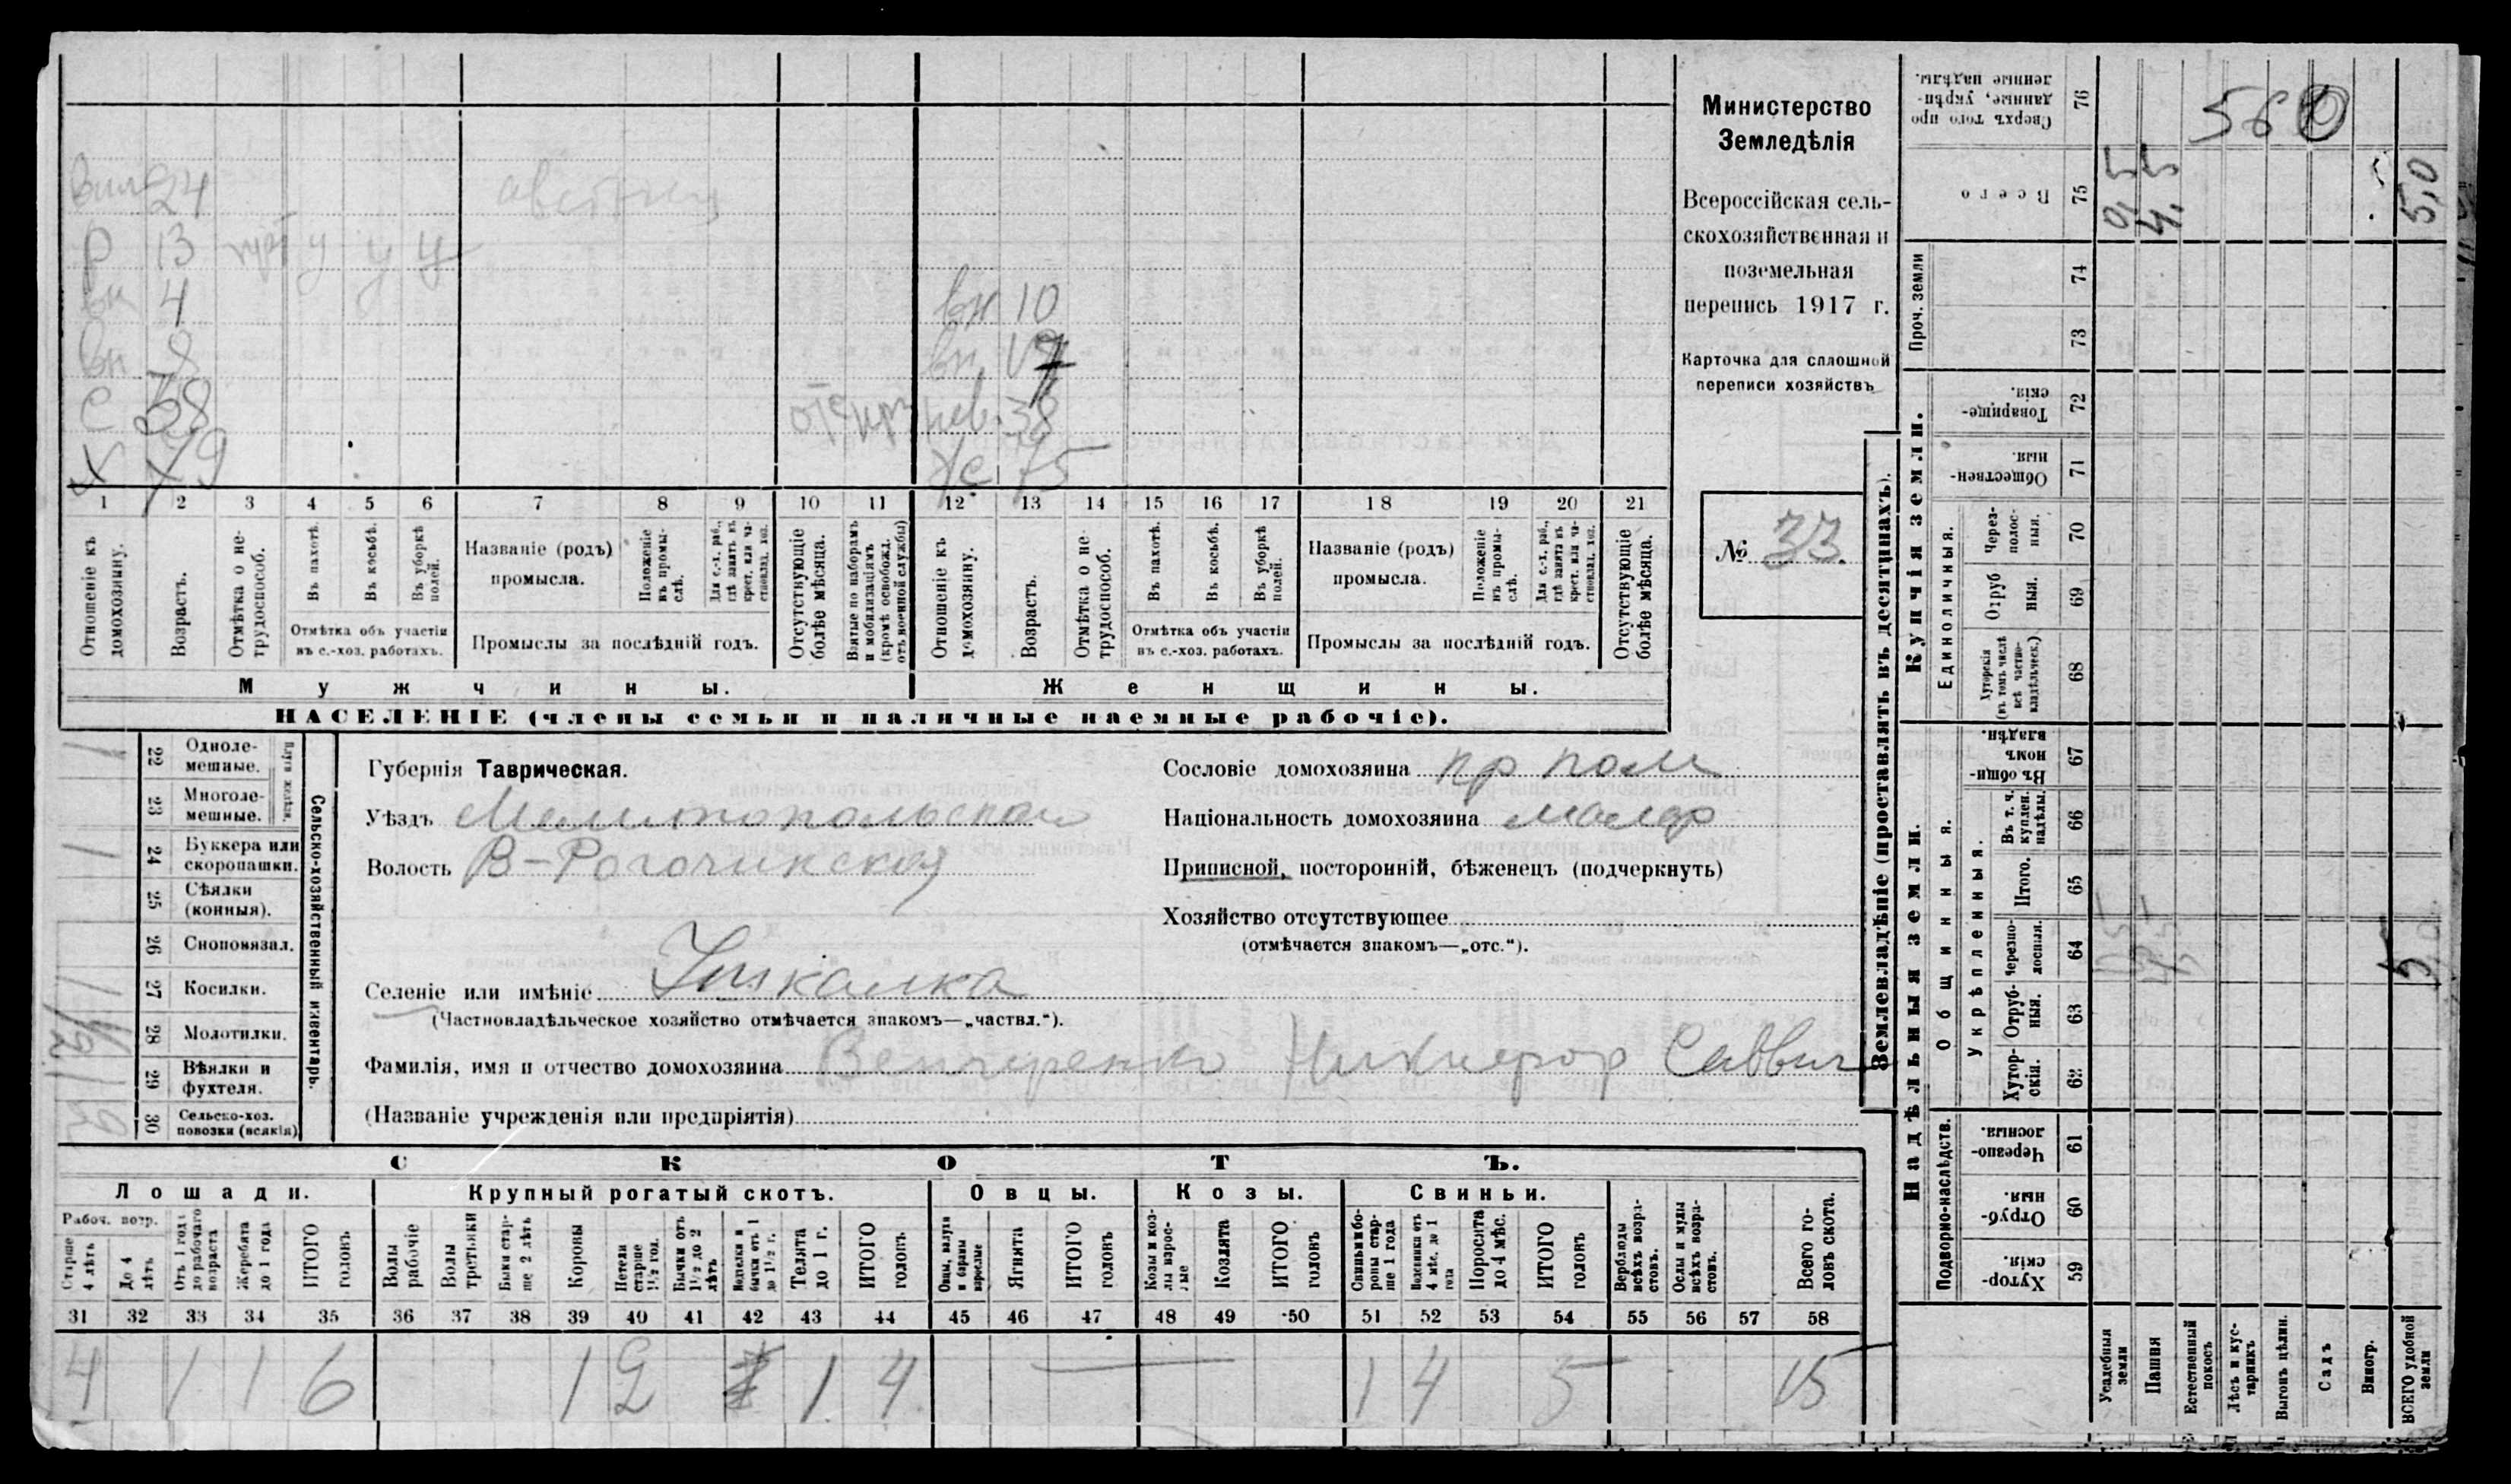 Министерство
Земледѣлія
Всероссійская сель-
скохозяйственная и
поземельная
перепись 1917 г.
Карточка для сплошной
переписи хозяйствъ
№ 33.
24
Р 13 у у у
вн 4 вн 10
вн 8 вн
С 38
Х 79 75
1 2 3 4 5 6 7 8 9 10 11 12 13 14 15 16 17 18 19 20 21
Отношеніе къ домохозяину.
Возрастъ.
Отмѣтка о не-трудоспособ.
Въ пахотѣ.
Въ косьбѣ.
Въ уборкѣ полей.
Отмѣтка объ участіи
въ с.-хоз. работахъ.
Названіе (родъ)
промысла.
Положеніе въ промы-слѣ.
Для с.-х. раб., гдѣ занятъ въ крест. или ча-стновлад. хоз.
Промыслы за послѣдній годъ.
Отсутствующіе болѣе мѣсяца.
Взятые по наборамъ и мобилизаціямъ (кромѣ освобожд. отъ военной службы)
Отношеніе къ домохозяину.
Возрастъ.
Отмѣтка о не-трудоспособ.
Въ пахотѣ.
Въ косьбѣ.
Въ уборкѣ полей.
Отмѣтка объ участіи
въ с.-хоз. работахъ.
Названіе (родъ)
промысла.
Положеніе въ промы-слѣ.
Для с.-х. раб., гдѣ занята въ крест. или ча-стновлад. хоз.
Промыслы за послѣдній годъ.
Отсутствующіе болѣе мѣсяца.
Мужчины.
Женщины.
НАСЕЛЕНІЕ (члены семьи и наличные наемные рабочіе).
22 Одноле-мешные.
23 Многоле-мешные.
24 Буккера или скоропашки.
25 Сѣялки (конныя).
26 Сноповязал.
27 Косилки.
28 Молотилки.
29 Вѣялки и фухтеля.
30 Сельско-хоз. повозки (всякія)
Плуги желѣзн.
Сельско-хозяйственный инвентарь.
Губернія Таврическая.
Уѣздъ Мелитопольскаго
Волость В-Рогочикская
Селеніе или имѣніе Ушкалка
(Частновладѣльческое хозяйство отмѣчается знакомъ—„частвл.“).
Фамилія, имя и отчество домохозяина Никифор Саввич
(Названіе учрежденія или предпріятія)
Сословіе домохозяина
Національность домохозяина малор
Приписной, посторонній, бѣженецъ (подчеркнуть)
Хозяйство отсутствующее
(отмѣчается знакомъ—„отс.“).
СКОТЪ.
Лошади.
Крупный рогатый скотъ.
Овцы.
Козы.
Свиньи.
Рабоч. возр.
Старше 4 лѣтъ
До 4 лѣтъ
Отъ 1 года до рабочаго возраста
Жеребята до 1 года
ИТОГО головъ
Волы рабочіе
Волы третьяки
Быки стар-ше 2 лѣтъ
Коровы
Нетели старше 1½ год.
Бычки отъ 1½ до 2 лѣтъ
Телята до 1 г.
ИТОГО головъ
Ягнята
ИТОГО головъ
Козы и коз-лы взрос-лые
Козлята
ИТОГО головъ
Поросята до 4 мѣс.
ИТОГО головъ
Верблюды всѣхъ возра-стовъ.
Ослы и мулы всѣхъ возра-стовъ.
Всего го-ловъ скота.
31 32 33 34 35 36 37 38 39 40 41 42 43 44 45 46 47 48 49 50 51 52 53 54 55 56 57 58
4 1 1 6 1 2 1 4 1 4 5 15
Землевладѣніе (проставлять въ десятинахъ).
Надѣльныя земли.
Купчія земли.
Проч. земли
Подворно-наслѣдств.
Общинныя.
Укрѣпленныя.
Единоличныя.
76 Сверхъ того про данные, укрѣп-ленные надѣлы.
75 Всего
74
73
72 Товарище-скія.
71 Обществен-ныя.
70 Через-полос-ныя.
69 Отруб ныя.
68 Хуторскія (въ томъ числѣ всѣ частно-владѣльческ.)
67 Въ общин-номъ владѣн.
66 Въ т. ч. куплен. надѣлы.
65 Итого.
64 Черезпо-лосныя.
63 Отруб-ныя.
62 Хутор-скія.
61 Черезпо-лосныя.
60 Отруб-ныя.
59 Хутор-скія.
Усадебныя земли
Пашня
Естественный покосъ
Лѣсъ и кус-тарникъ
Выгонъ цѣлин.
Садъ
Виногр.
ВСЕГО удобной земли
4,5
5,0